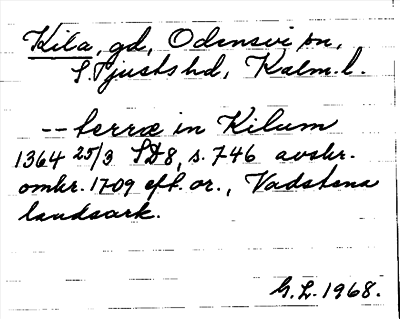 Kila, gd, Odensvi sn,
S Tjusts hd, Kalm. l.
-- terræ in Kilum
1364 25/3 SD8, s. 746 avskr.
omkr. 1709 eft. or., Vadstena
landsark.
G.L. 1968.